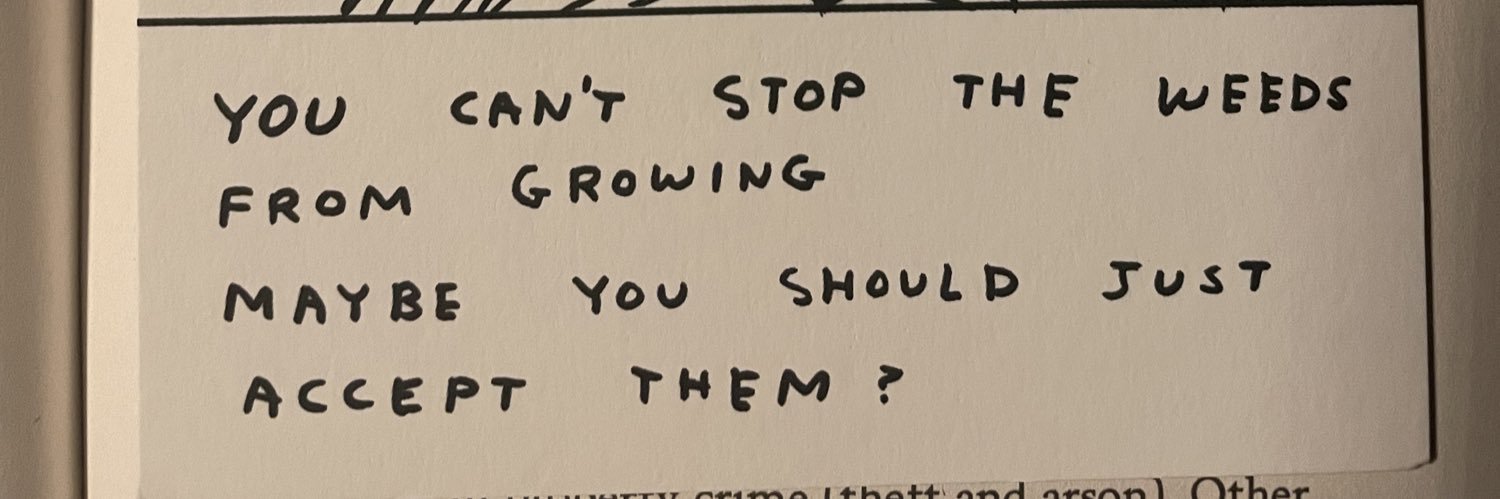 YOU CAN'T STOP THE WEEDS
FROM GROWING
MAYBE YOU SHOULD JUST
ACCEPT THEM?
crime (theft and arson). Other